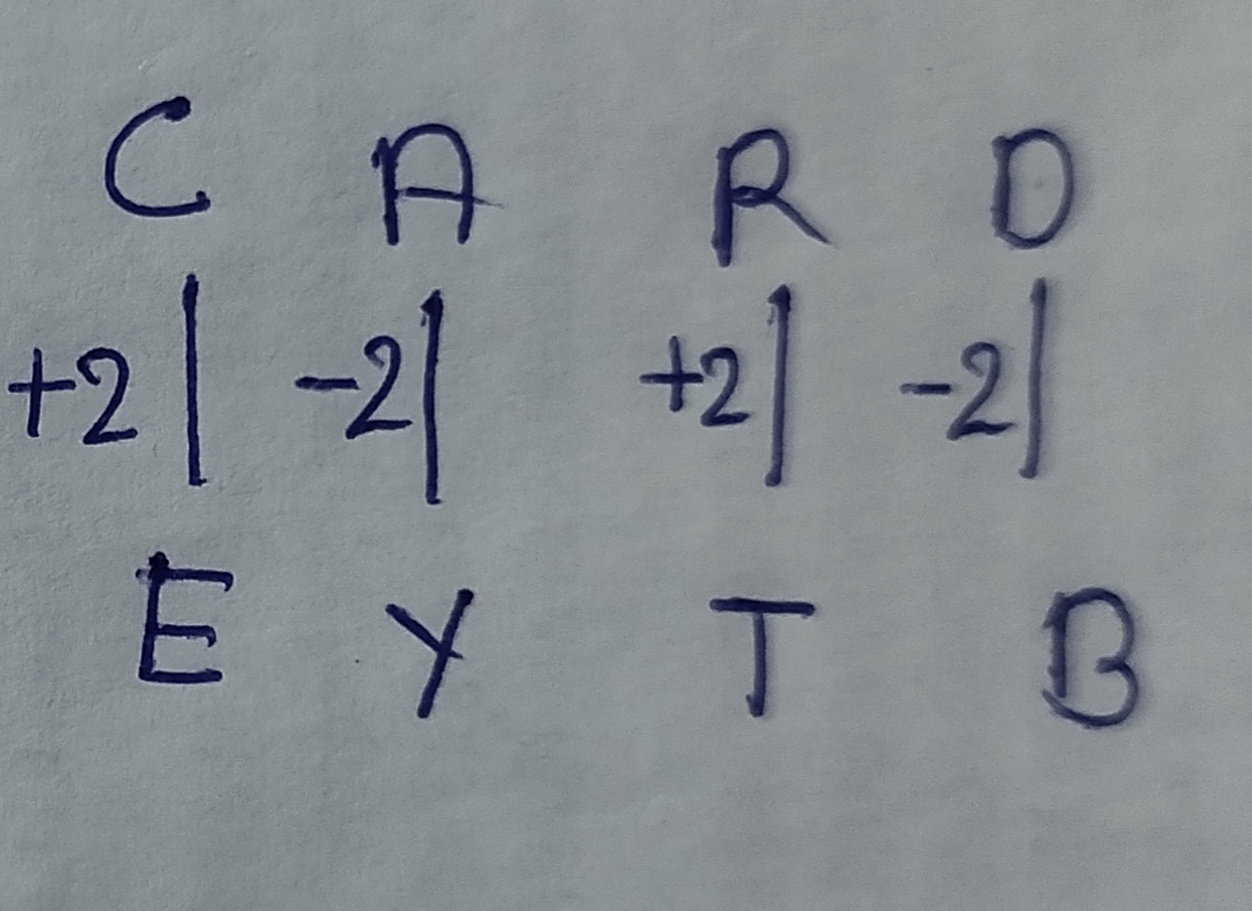 C A R D
+2| -2| +2| -2|
E Y T B